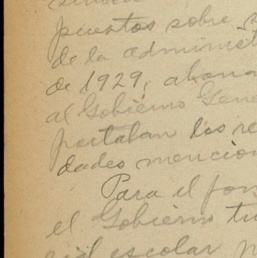 puestos sobre
de la administ
de 1929, abona
al Gobierno Gene
portaban los re
dades mencion
Para el fom
el Gobierno tu
escolar